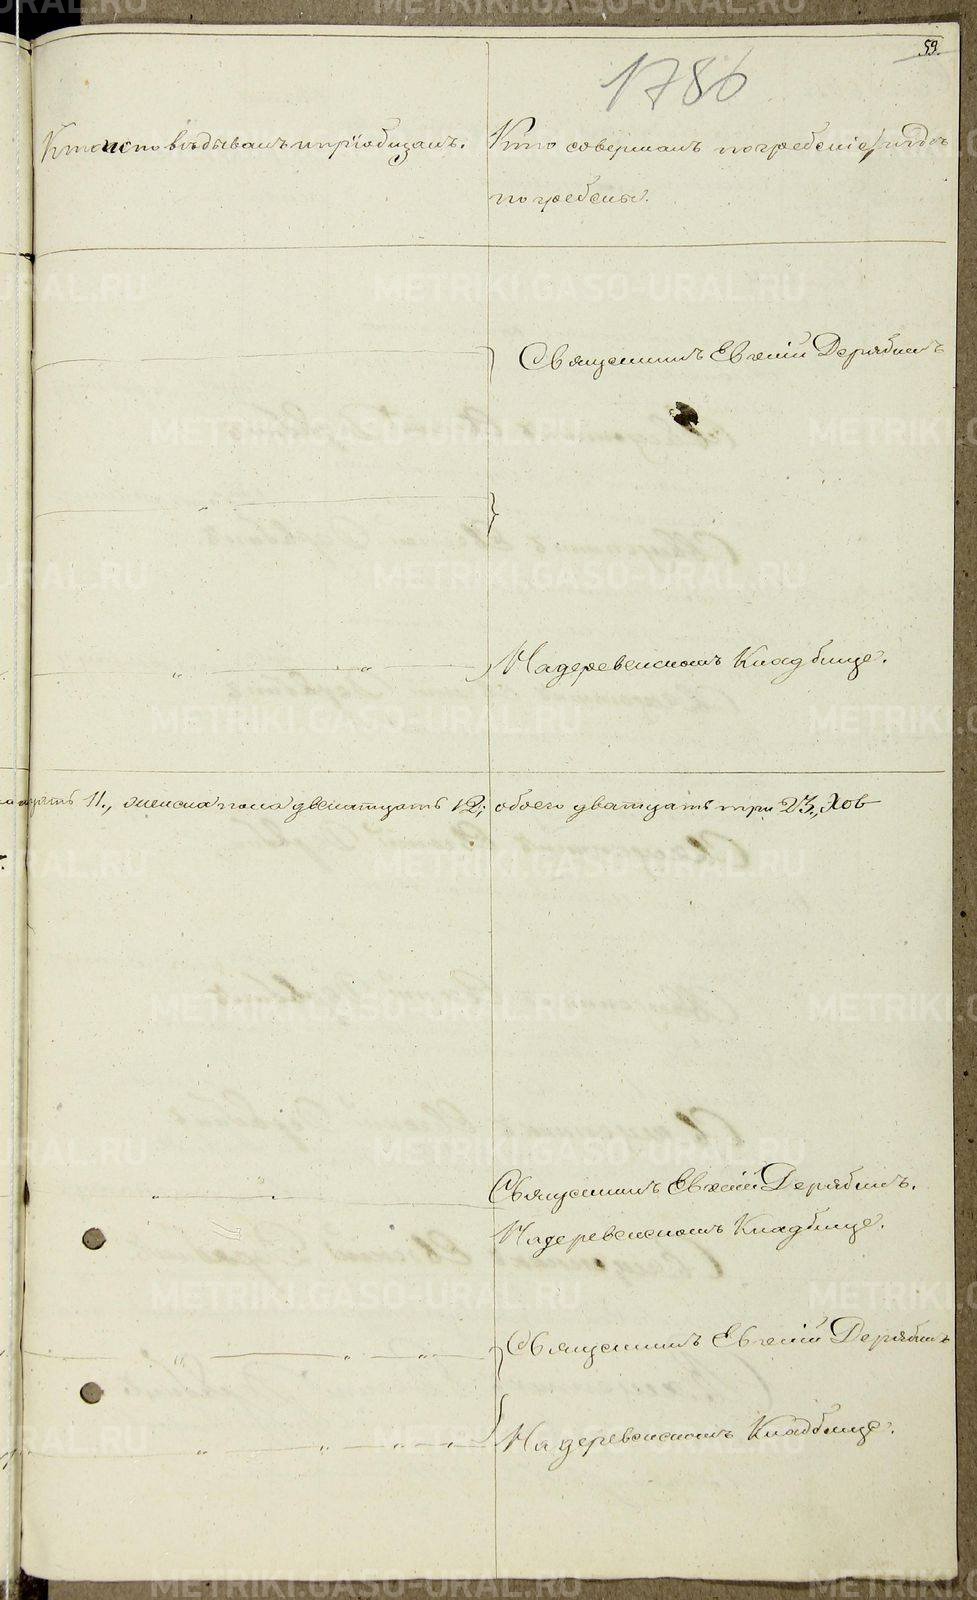 59.
1786
Кто исповѣдывалъ и пріобщалъ.
Кто совершалъ погребеніе и гдѣ
погребены.
Священникъ Евгеній Дерябинъ
На деревенскомъ Кладбище.
11., женска пола двенатцать 12; обоего дватцать три 23.
Священникъ Евгеній Дерябинъ.
На деревенскомъ Кладбище.
Священникъ Евгеній Дерябинъ
На деревенскомъ Кладбище.
METRIKI.GASO-URAL.RU